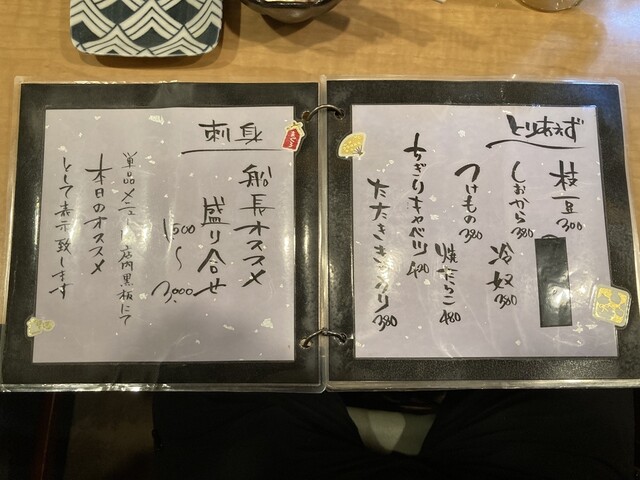 とりあえず
枝豆 300
しおから 380
冷奴 380
つけもの 380
焼たらこ 480
ちぎりキャベツ 420
たたききゅうり 380
刺身
船長オススメ
盛り合せ
1,500〜3,000
単品メニューは店内黒板にて
本日のオススメ
として表示致します